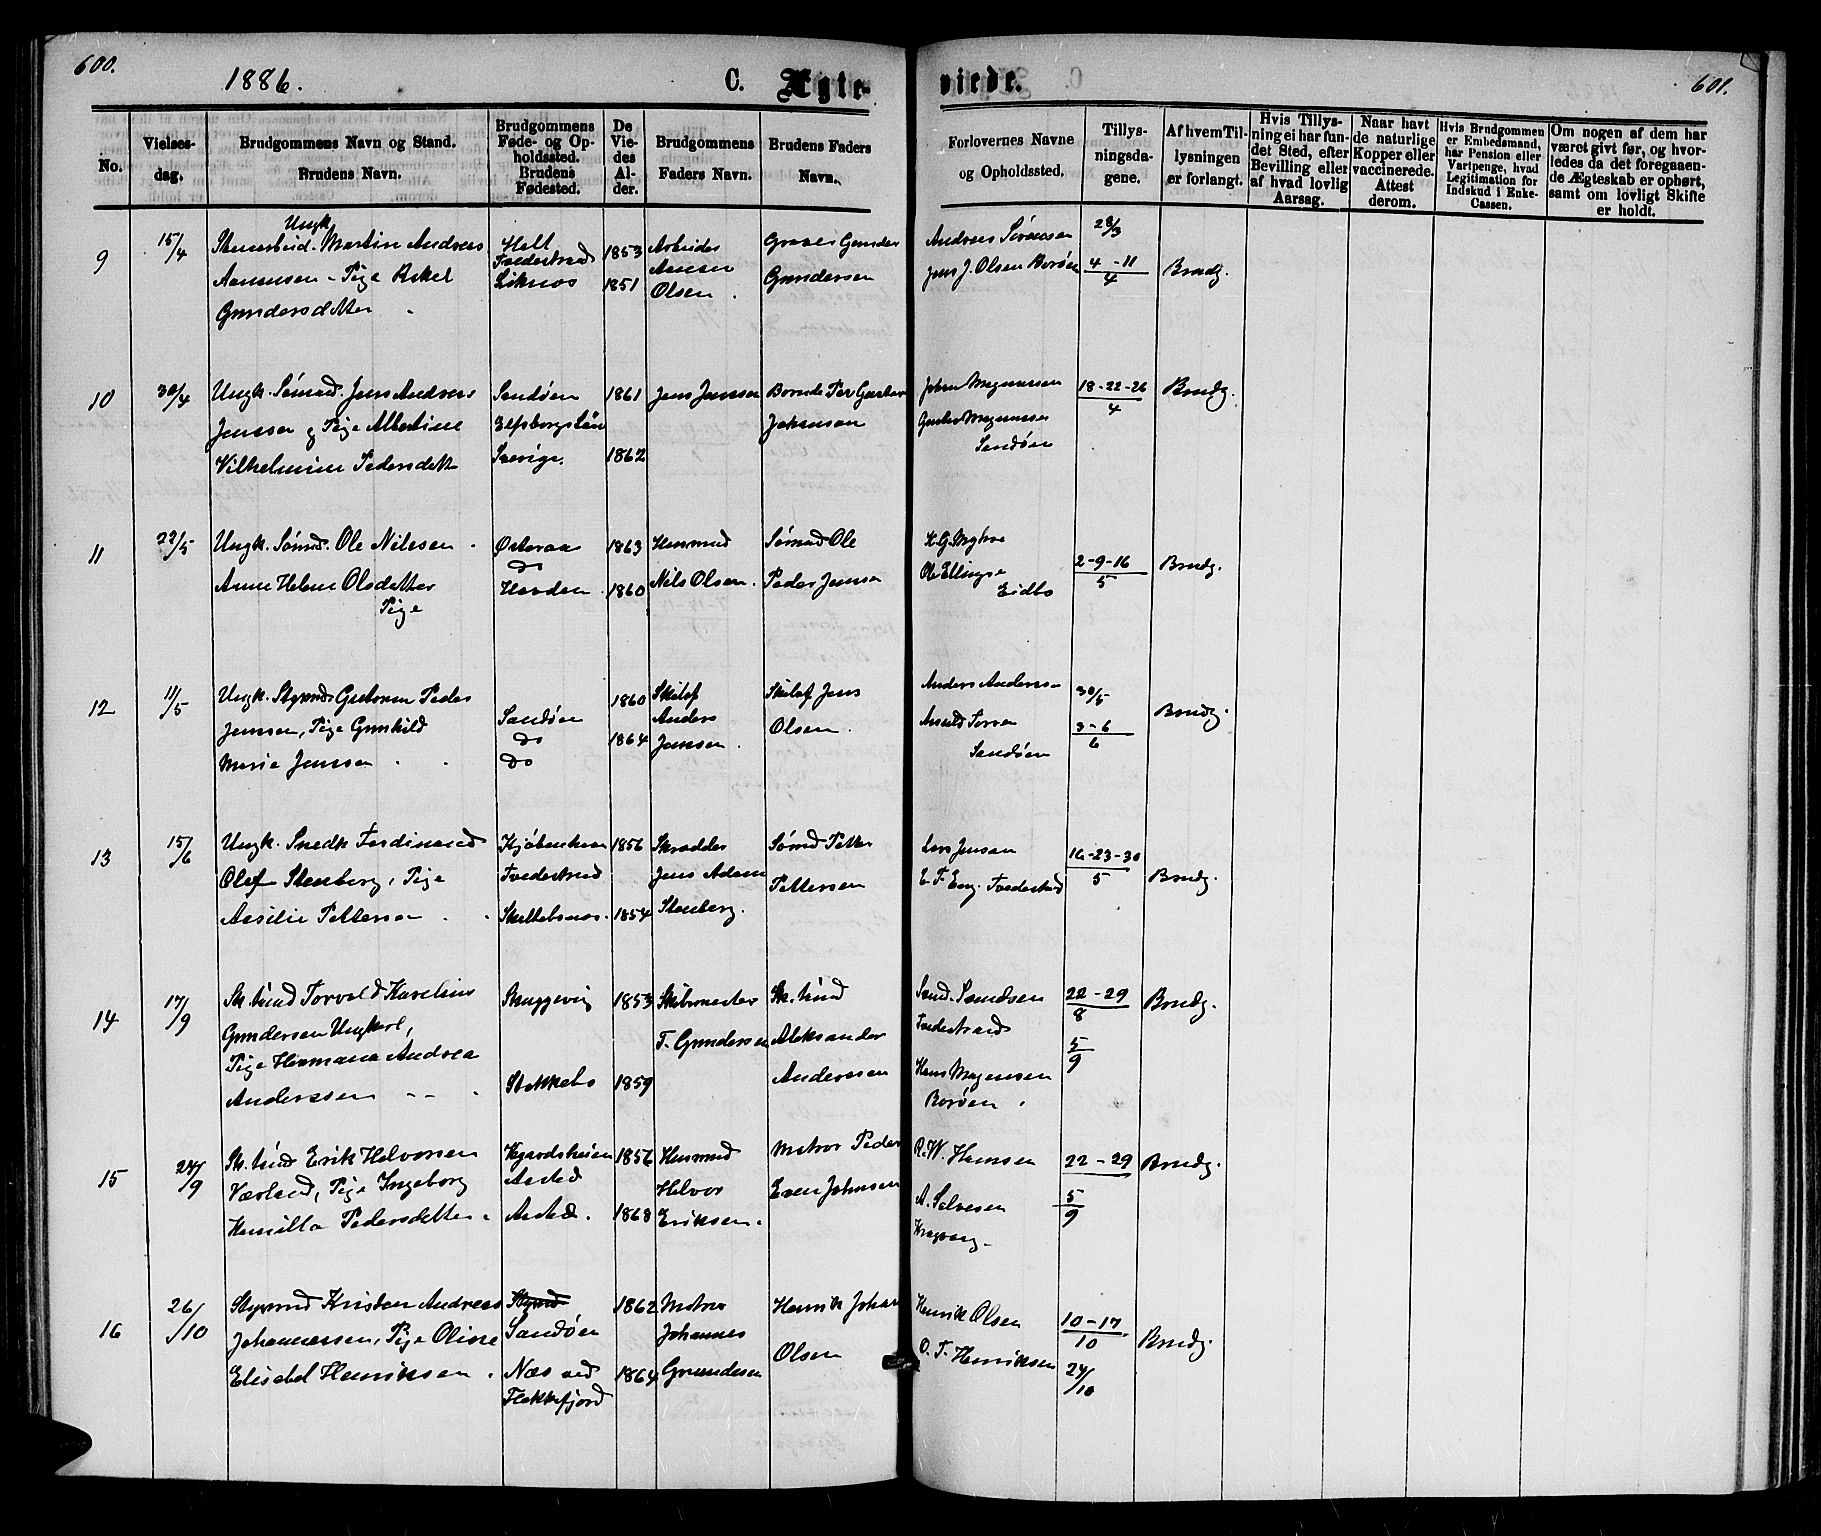 600.
1886.
C. Ægte-
viede.
601.
No.
Vielses-
dag.
Brudgommens Navn og Stand.
Brudens Navn.
Brudgommens
Føde- og Op-
holdssted.
Brudens
Fødested.
De
Vie-
des
Al-
der.
Brudgommens
Faders Navn.
Brudens Faders
Navn.
Forlovernes Navne
og Opholdssted.
Tillys-
ningsda-
gene.
Af hvem Til-
lysningen
er forlangt.
Hvis Tillys-
ning ei har fun-
det Sted, efter
Bevilling eller
af hvad lovlig
Aarsag.
Naar havt
de naturlige
Kopper eller
vaccinerede.
Attest
derom.
Hvis Brudgommen
er Embedsmand,
har Pension eller
Vartpenge, hvad
Legitimation for
Indskud i Enke-
Cassen.
Om nogen af dem har
været givt før, og hvor-
ledes da det foregaaen-
de Ægteskab er ophørt,
samt om lovligt Skifte
er holdt.
9
15/4
Ungk.
Martin Andreas
Aanensen - Pige Askel
Gundersdatter
Holt
Tvedestrand
1853
1851
Arbeider
Aanen
Olsen
Gunder
Gundersen
Andreas Sørensen
Jens J. Olsen Borøen
28/3
4-11
4
Brudg.
10
30/4
Ungk. Sømd. Jens Andreas
Jensen og Pige Albertine
Vilhelmine Pedersdatter
Sandøen
Elfsborgs Län
Sverige.
1861
1862
Jens Jensen
Bonde Per Gustav
Johanson
Johan Magnussen
Gustav Magnussen
Sandøen
18-22-26
4
Brudg.
11
22/5
Ungk. Sømd. Ole Nilssen
Anne Helene Olsdatter
Pige
Østeraa
do
1863
1860
Husmand
Nils Olsen.
Sømd Ole
Peder Jensen
Ole Ellingse
Eidbo
2-9-16
5
Brudg.
12
11/5
Ungk. Styrmd Guttorm Peder
Jensen, Pige Gunhild
Marie Jensen
Sandøen
do
do
1860
1864
Anders
Jensen.
Jens
Olsen.
Anders Anders-
Sandøen
30/5
3-6
6
Brudg.
13
15/6
Ungk. Snedk Ferdinand
Olof Stenberg, Pige
Pettersen
Kjøbenhavn
Tvedestrand
1856
1854
Skrædder
Jens Adam
Stenberg.
Sømd Petter
Pettersen
Lars Jensen
E. F. Eng. Tvedestrand
16-23-30
5
Brudg.
14
17/9
Torvald Karelius
Gundersen Ungkarl,
Pige Hermana Andrea
Anderssen
Skuggevig
Stokkebo
1853
1859
Skibsmester
T. Gundersen
Aleksander
Anderssen
Tvedestrand
Hans Magnussen
Borøen
22-29
8
5/9
Brudg.
15
24/9
Erik Halvorsen
Værland, Pige Ingeborg
Kamilla Pedersdatter
Vegardsheien
1856
1868
Husmand
Halvor
Eriksen.
Matros Peder
Even Johnsen
R. W. Hansen
A. Salvesen
22-29
5/9
Brudg.
16
26/10
Styrmd Kristen Andreas
Johannessen, Pige Oline
Elisabet Henriksen
Styrmd
Sandøen
Næs ved
Flekkefjord
1862
1864
Matros
Johannes
Gundersen
Henrik Johan
Olsen
Henrik Olsen
O. T. Henriksen
10-17
10
24/10
Brudg.